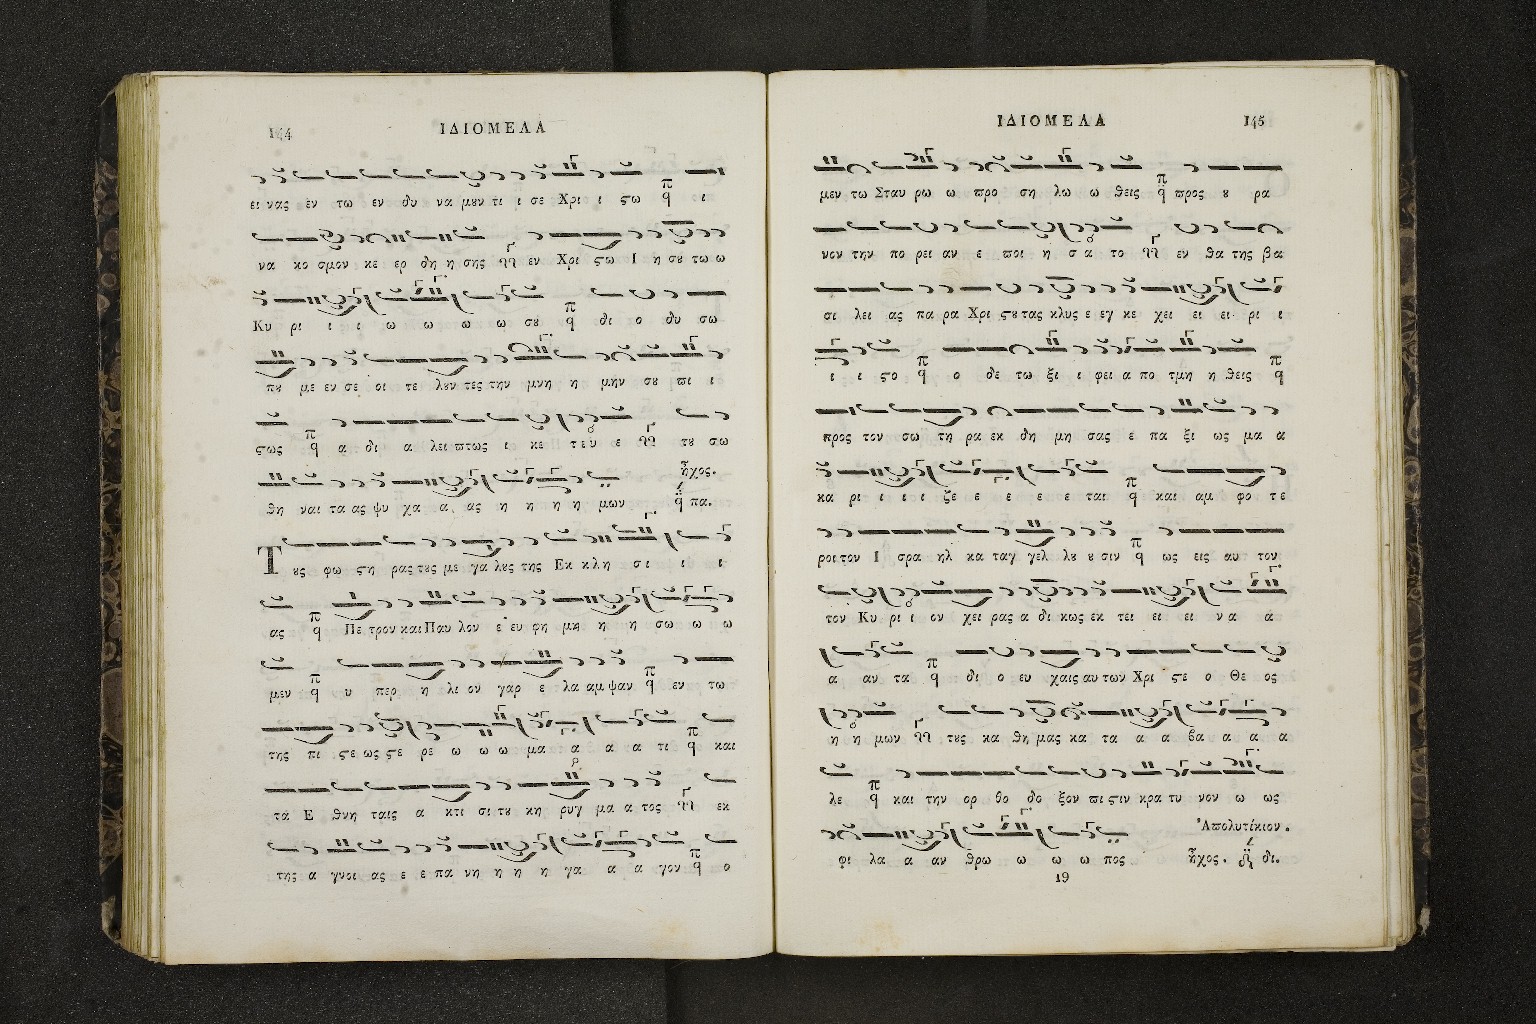 144
ΙΔΙΟΜΕΛΑ
ει νας εν τω εν δυ να μȣν τι ι σε Χρι ι ϛω ι
να κο σμον κε ερ δη η σης εν Χρι ϛω Ι η σȣ τω ω
Κυ ρι ι ι ω ω ω ω σȣ δι ο δυ σω
πȣ με εν σε οι τε λȣν τες την μνη η μην σȣ πι ι
ϛως α δι α λει πτως ι κε τευ ε τȣ σω
θη ναι τα ας ψυ χα α ας η η η η μων ἦχος. πα.
Τ ȣς φω ϛη ρας τȣς με γα λȣς της Εκ κλη σι ι ι
ας Πε τρον και Παυ λον ε ευ φη μη η η σω ω ω
μεν υ περ η λι ον γαρ ε λα αμ ψαν εν τω
της πι ϛε ως ϛε ρε ω ω ω μα α α α τι και
τα Ε θνη ταις α κτι σι τȣ κη ρυγ μα α τος εκ
της α γνοι ας ε ε πα νη η η η γα α α γον ο
ΙΔΙΟΜΕΛΑ
145
μεν τω Σταυ ρω ω προ ση λω ω θεις προς ȣ ρα
νον την πο ρει αν ε ποι η σα το εν θα της βα
σι λει ας πα ρα Χρι ϛȣ τας κλυς ε εγ κε χει ει ει ρι ι
ι ι ϛο ο δε τω ξι ι φει α πο τμη η θεις
προς τον σω τη ρα εκ δη μη σας ε πα ξι ως μα α
κα ρι ι ι ι ζε ε ε ε ε ται και αμ φο τε
ροι τον Ι σρα ηλ κα ταγ γελ λȣ ȣ σιν ως εις αυ τον
τον Κυ ρι ι ον χει ρας α δι κως εκ τει ει ει να α
α αν τα δι ο ευ χαις αυ των Χρι ϛε ο Θε ος
η η μων τȣς κα θη μας κα τα α α βα α α α
λε και την ορ θο δο ξον πι ϛιν κρα τυ νον ω ως
φι λα α αν θρω ω ω ω πος
Ἀπολυτίκιον.
ἦχος. δι.
19